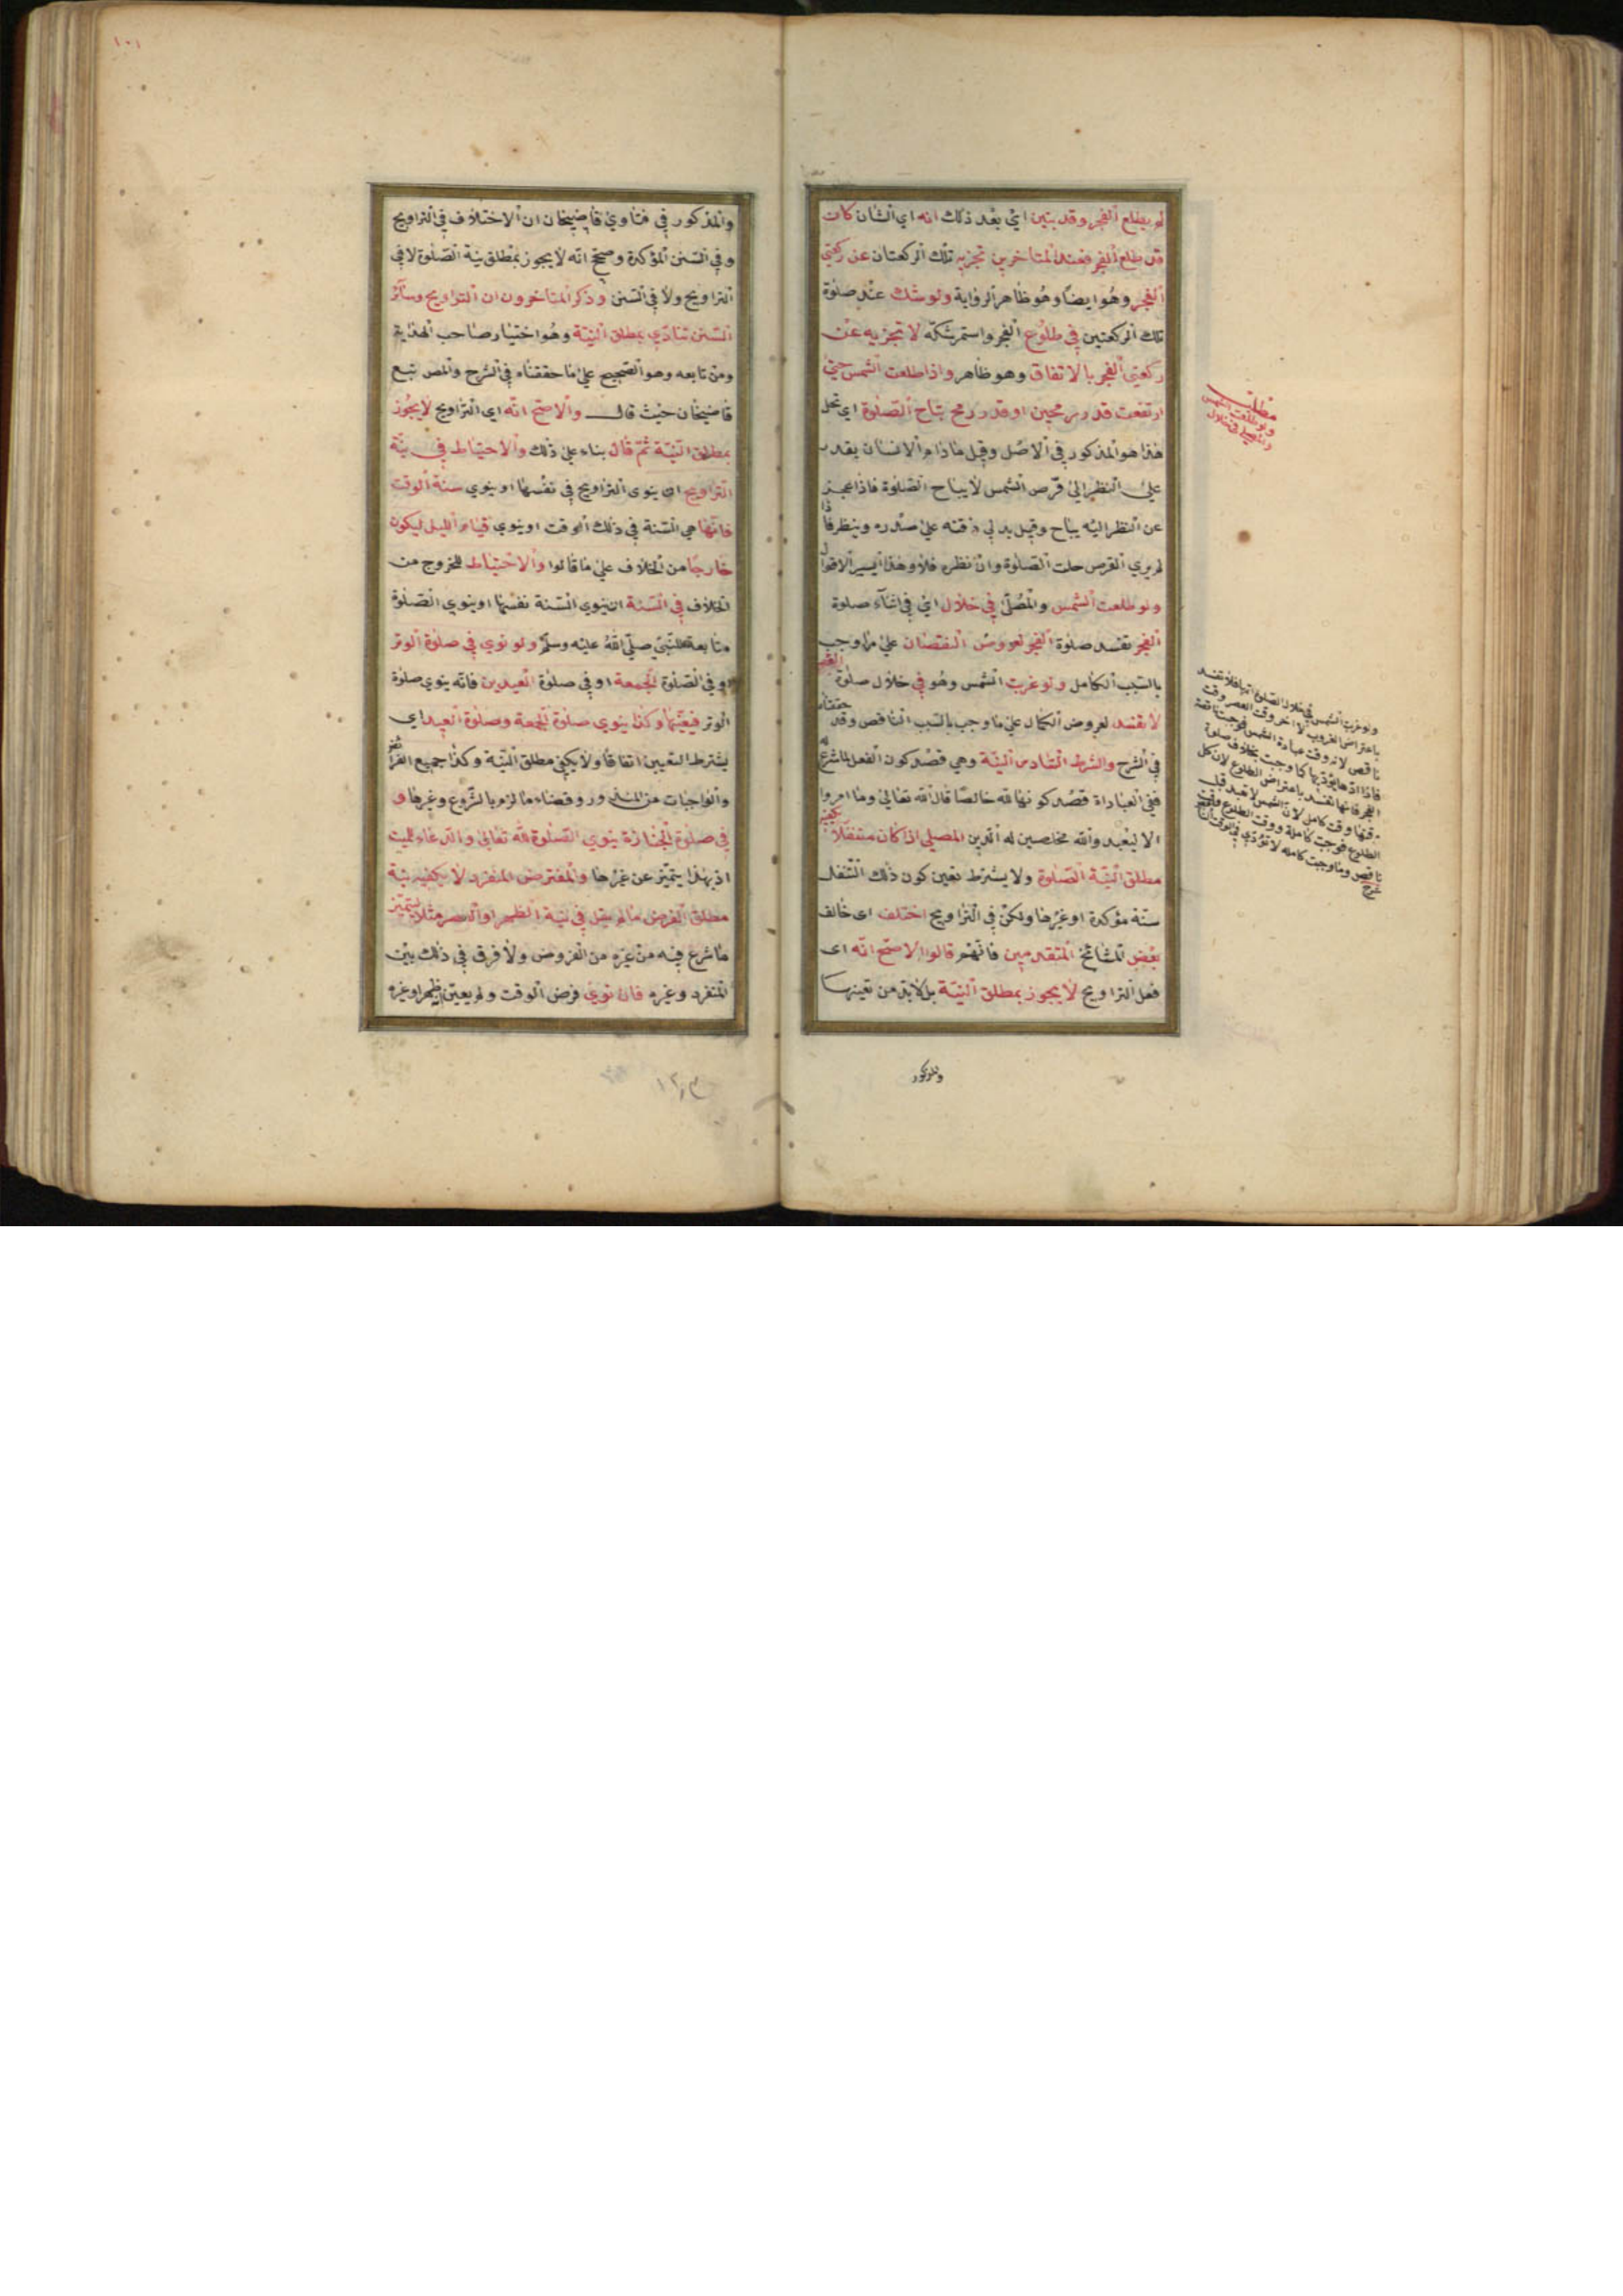 لم يطلع الفجر وقد تبين اي بعد ذلك انه اي الشان كان
قد طلع الفجر فعند المتاخرين تجزيه تلك الركعتان عن ركعتي
الفجر وهو ايضا وهو ظاهر الرواية ولو شك عند صلوة
تلك الركعتين في طلوع الفجر واستمر شكه لا تجزيه عن
ركعتي الفجر بالاتفاق وهو ظاهر واذا طلعت الشمس حتى
ارتفعت قدر رمحين او قدر رمح يباح الصلوة اي تحل
هذا هو المذكور في الاصل وقيل ما دام الانسان يقدر
على النظر الى قرص الشمس لا يباح الصلوة فاذا عجز
عن النظر اليه يباح وقيل يدلي ذقنه على صدره وينظر فاذا
لم يرى القرص حلت الصلوة وان نظره فلا وهذا ايسر الاقوال
ولو طلعت الشمس والمصلي في خلال اي في اثناء صلوة
الفجر تفسد صلوة الفجر لعروض النقصان على ما وجب
بالسبب الكامل ولو غربت الشمس وهو في خلال صلوة العصر
لا تفسد لعروض الكمال على ما وجب بالسبب الناقص وقد حققناه
في الشرح والشرط السادس النية وهي قصد كون الفعل لما شرع له
ففي العبادات قصد كونها لله خالصا قال الله تعالى وما امروا
الا ليعبدوا الله مخلصين له الدين المصلي اذا كان متنفلا يكفيه
مطلق النية الصلوة ولا يشترط تعين كون ذلك التنفل
سنة مؤكدة او غيرها ولكن في التراويح اختلف اي خالف
بعض المشائخ المتقدمين فانهم قالوا الاصح انه اي
فعل التراويح لا يجوز بمطلق النية بل لا بد من تعينها
والمذكور
مطلب
ولو طلعت الشمس
والمصلي في خلال
ولو غربت الشمس في خلال الصلوة فلا تفسد
باعتراض الغروب لان اخر وقت العصر وقت
ناقص لانه وقت عبادة الشمس فوجبت ناقصة
فاذا اداها يؤديها كما وجبت بخلاف صلوة
الفجر فانها تفسد باعتراض الطلوع لان كل
وقتها وقت كامل لان الشمس لا تعبد قبل
الطلوع فوجبت كاملة ووقت الطلوع وقت
ناقص وما وجبت كاملة لا تؤدي في الوقت الناقص
شرح
١٠١
والمذكور في فتاوى قاضيخان ان الاختلاف في التراويح
وفي السنن المؤكدة وصحح انه لا يجوز بمطلق نية الصلوة لا في
التراويح ولا في السنن وذكر المتاخرون ان التراويح وسائر
السنن تتادي بمطلق النية وهو اختيار صاحب الهداية
ومن تابعه وهو الصحيح على ما حققناه في الشرح والمص تبع
قاضيخان حيث قال والاصح انه اي التراويح لا يجوز
بمطلق النية ثم قال بناء على ذلك والاحتياط في نية
التراويح ان ينوى التراويح في نفسها او ينوي سنة الوقت
فانها هي السنة في ذلك الوقت او ينوي قيام الليل ليكون
خارجا من الخلاف على ما قالوا والاحتياط للخروج من
الخلاف في السنة ان ينوي السنة نفسها او ينوي الصلوة
متابعة للنبي صلى الله عليه وسلم ولو نوي في صلوة الوتر
او في الصلوة الجمعة او في صلوة العيدين فانه ينوي صلوة
الوتر فيعينها وكذا ينوي صلوة الجمعة وصلوة العيد اي
يشترط التعيين اتفاقا ولا يكفي مطلق النية وكذا جميع الفرائض
والواجبات من المنذور وقضاء ما لزم بالشروع وغيرها و
في صلوة الجنازة ينوي الصلوة لله تعالى والدعاء للميت
اذ بهذا يتميز عن غيرها والمفترض المنفرد لا يكفيه نية
مطلق الفرض ما لم يقل في نية الظهر او العصر مثلا ليتميز
ما شرع فيه من غيره من الفروض ولا فرق في ذلك بين
المنفرد وغيره فان نوى فرض الوقت ولم يعين ظهر او غيره